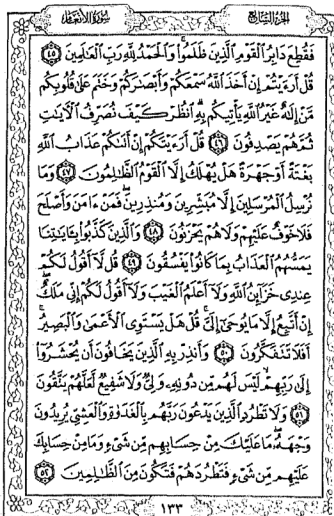 الجزء السابع سورة الأنعام
فَقُطِعَ دَابِرُ ٱلْقَوْمِ ٱلَّذِينَ ظَلَمُوا۟ وَٱلْحَمْدُ لِلَّهِ رَبِّ ٱلْعَٰلَمِينَ ٤٥
قُلْ أَرَءَيْتُمْ إِنْ أَخَذَ ٱللَّهُ سَمْعَكُمْ وَأَبْصَٰرَكُمْ وَخَتَمَ عَلَىٰ قُلُوبِكُم
مَّنْ إِلَٰهٌ غَيْرُ ٱللَّهِ يَأْتِيكُم بِهِ ٱنظُرْ كَيْفَ نُصَرِّفُ ٱلْءَايَٰتِ
ثُمَّ هُمْ يَصْدِفُونَ ٤٦ قُلْ أَرَءَيْتَكُمْ إِنْ أَتَىٰكُمْ عَذَابُ ٱللَّهِ
بَغْتَةً أَوْ جَهْرَةً هَلْ يُهْلَكُ إِلَّا ٱلْقَوْمُ ٱلظَّٰلِمُونَ ٤٧ وَمَا
نُرْسِلُ ٱلْمُرْسَلِينَ إِلَّا مُبَشِّرِينَ وَمُنذِرِينَ فَمَنْ ءَامَنَ وَأَصْلَحَ
فَلَا خَوْفٌ عَلَيْهِمْ وَلَا هُمْ يَحْزَنُونَ ٤٨ وَٱلَّذِينَ كَذَّبُوا۟ بِـَٔايَٰتِنَا
يَمَسُّهُمُ ٱلْعَذَابُ بِمَا كَانُوا۟ يَفْسُقُونَ ٤٩ قُل لَّآ أَقُولُ لَكُمْ
عِندِى خَزَآئِنُ ٱللَّهِ وَلَآ أَعْلَمُ ٱلْغَيْبَ وَلَآ أَقُولُ لَكُمْ إِنِّى مَلَكٌ
إِنْ أَتَّبِعُ إِلَّا مَا يُوحَىٰٓ إِلَىَّ قُلْ هَلْ يَسْتَوِى ٱلْأَعْمَىٰ وَٱلْبَصِيرُ
أَفَلَا تَتَفَكَّرُونَ ٥٠ وَأَنذِرْ بِهِ ٱلَّذِينَ يَخَافُونَ أَن يُحْشَرُوٓا۟
إِلَىٰ رَبِّهِمْ لَيْسَ لَهُم مِّن دُونِهِ وَلِىٌّ وَلَا شَفِيعٌ لَّعَلَّهُمْ يَتَّقُونَ
٥١ وَلَا تَطْرُدِ ٱلَّذِينَ يَدْعُونَ رَبَّهُم بِٱلْغَدَوٰةِ وَٱلْعَشِىِّ يُرِيدُونَ
وَجْهَهُ مَا عَلَيْكَ مِنْ حِسَابِهِم مِّن شَىْءٍ وَمَا مِنْ حِسَابِكَ
عَلَيْهِم مِّن شَىْءٍ فَتَطْرُدَهُمْ فَتَكُونَ مِنَ ٱلظَّٰلِمِينَ ٥٢
١٣٣